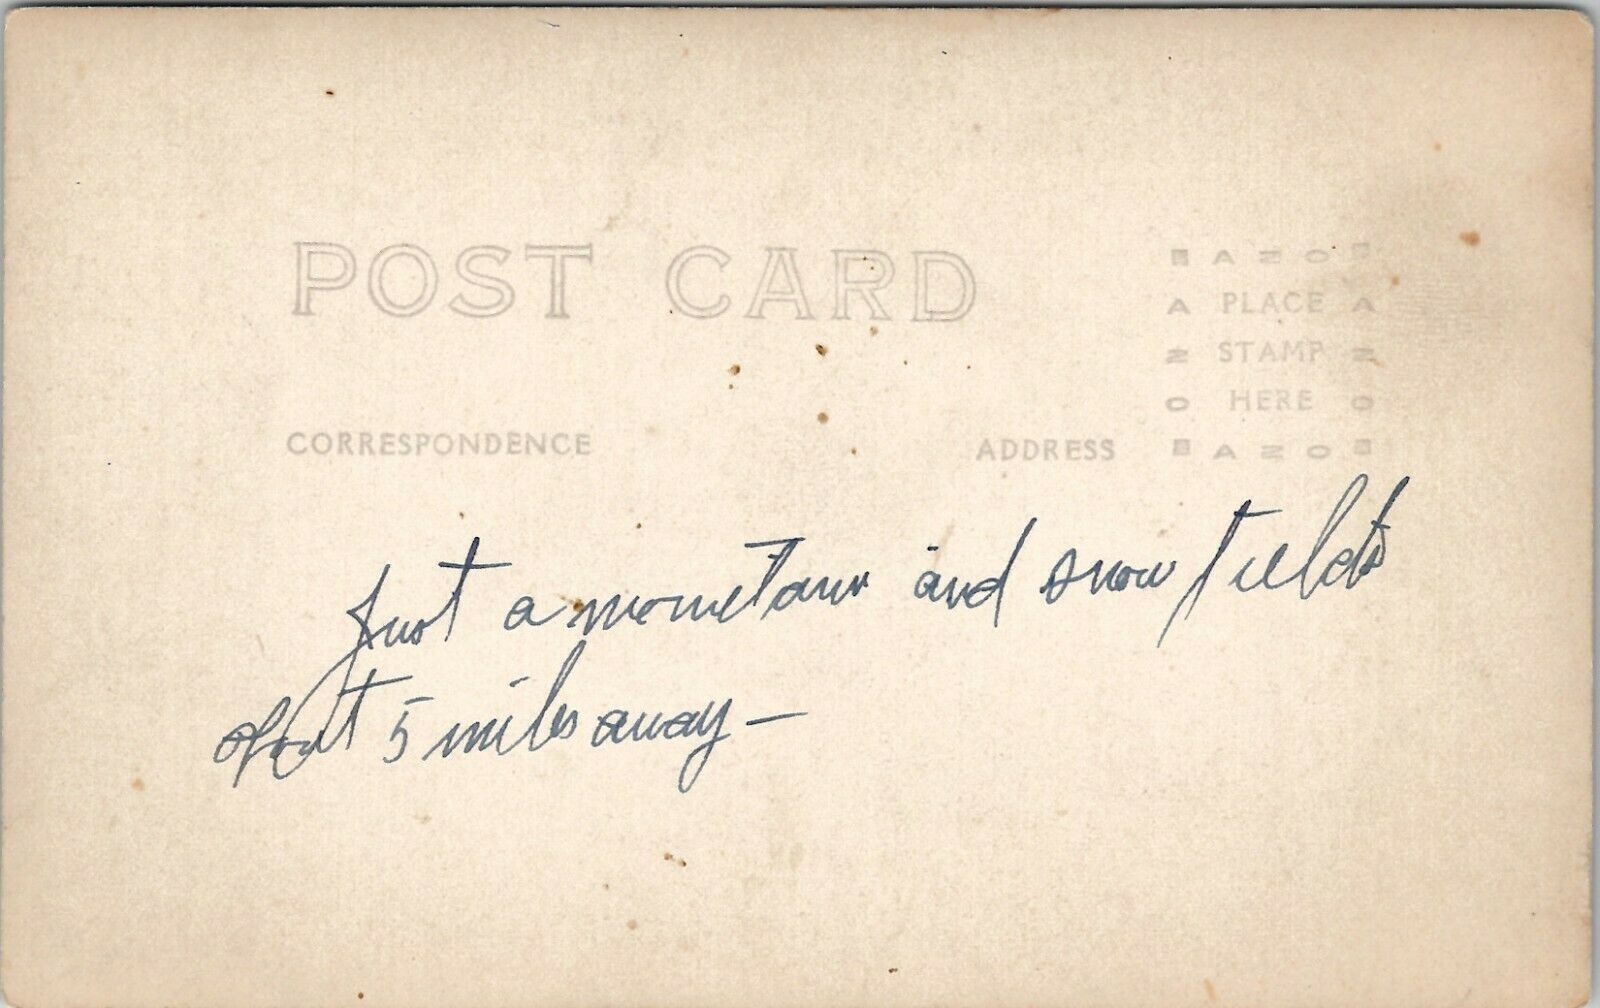 POST CARD
AZO
A PLACE A
Z STAMP Z
O HERE O
CORRESPONDENCE
ADDRESS
AZO
Just a mountain and snow fields
about 5 miles away —